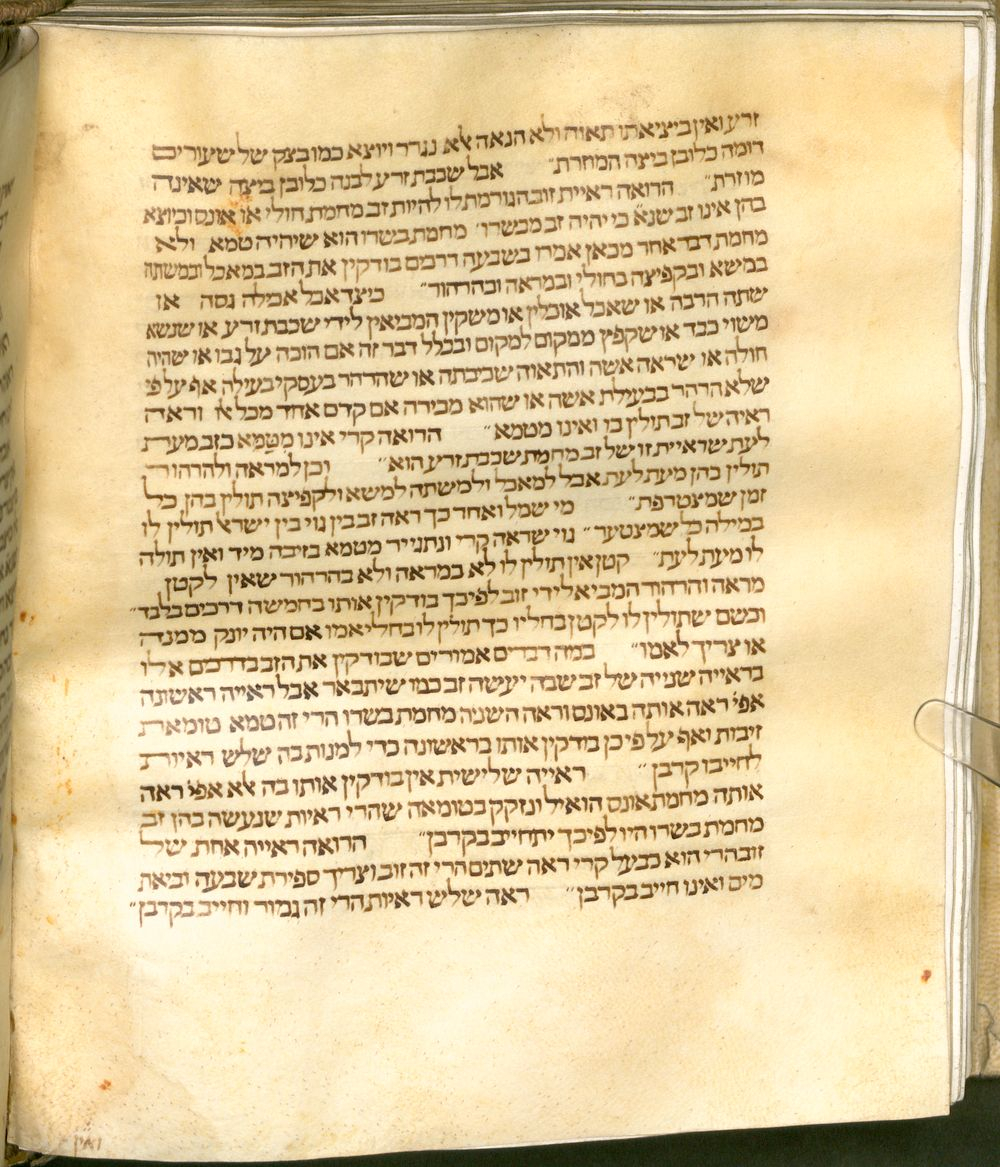 זרע ואין ביציאתו תאוה ולא הנאה אלא נגרר ויוצא כמו בצק של שעורים
דומה כלובן ביצה המוזרת״ אבל שכבת זרע לבנה כלובן ביצה שאינה
מוזרת״ הרואה ראיית זוב הגורמת לו להיות זב מחמת חולי או אונס וכיוצא
בהן אינו זב שנא׳ כי יהיה זב מבשרו׳ מחמת בשרו הוא שיהיה טמא ולא
מחמת דבר אחר מכאן אמרו בשבעה דרכים בודקין את הזב במאכל ובמשתה
במישא ובקפיצה בחולי ובמראה ובהרהור״ כיצד אכל אכילה גסה או
שתה הרבה או שאכל אוכלין או משקין המביאין לידי שכבת זרע או שנשא
משוי כבד או שקפץ ממקום למקום ובכלל דבר זה אם הוכה על גבו או שהיה
חולה או שראה אשה והתאוה שכיבתה או שהרהר בעסקי בעילה אף על פי
שלא הרהר בבעילת אשה או שהוא מכירה אם קדם אחד מכל אלו וראה
ראיה של זב תולין בו ואינו מטמא״ הרואה קרי אינו מטמא בזב מעת
לעת שראיית זו של זב מחמת שכבת זרע הוא״ וכן למראה ולהרהור
תולין בהן מעת לעת אבל למאכל ולמשתה למשא ולקפיצה תולין בהן כל
זמן שמצטרפת״ מי שמל ואחד כך ראה זב בין גוי בין ישראל תולין לו
במילה כל שמצטער״ גוי שראה קרי ונתגייר מטמא בזיבה מיד ואין תולה
לו מעת לעת״ קטן אין תולין לו לא במראה ולא בהרהור שאין לקטן
מראה והרהור המביא לידי זוב לפיכך בודקין אותו בחמשה דרכים בלבד״
וכשם שתולין לו לקטן בחליו כך תולין לו בחלי אמו אם היה יונק ממנה
או צריך לאמו״ במה דברים אמורים שבודקין את הזב בדרכים אלו
בראייה שנייה של זב שבה יעשה זב כמו שיתבאר אבל ראייה ראשונה
אפי׳ ראה אותה באונס וראה השניה מחמת בשרו הרי זה טמא טומאת
זיבות ואף על פי כן בודקין אותו בראשונה כדי למנות בה שלש ראיות
לחייבו קרבן״ ראייה שלישית אין בודקין אותו בה אלא אפי׳ ראה
אותה מחמת אונס הואיל ונזקק בטומאה שהרי ראיות שנעשה בהן זב
מחמת בשרו היו לפיכך יתחייב בקרבן״ הרואה ראייה אחת של
זוב הרי הוא כבעל קרי ראה שתים הרי זה זוב וצריך ספירת שבעה וביאת
מים ואינו חייב בקרבן״ ראה שלש ראיות הרי זה גמור וחייב בקרבן״
ואין